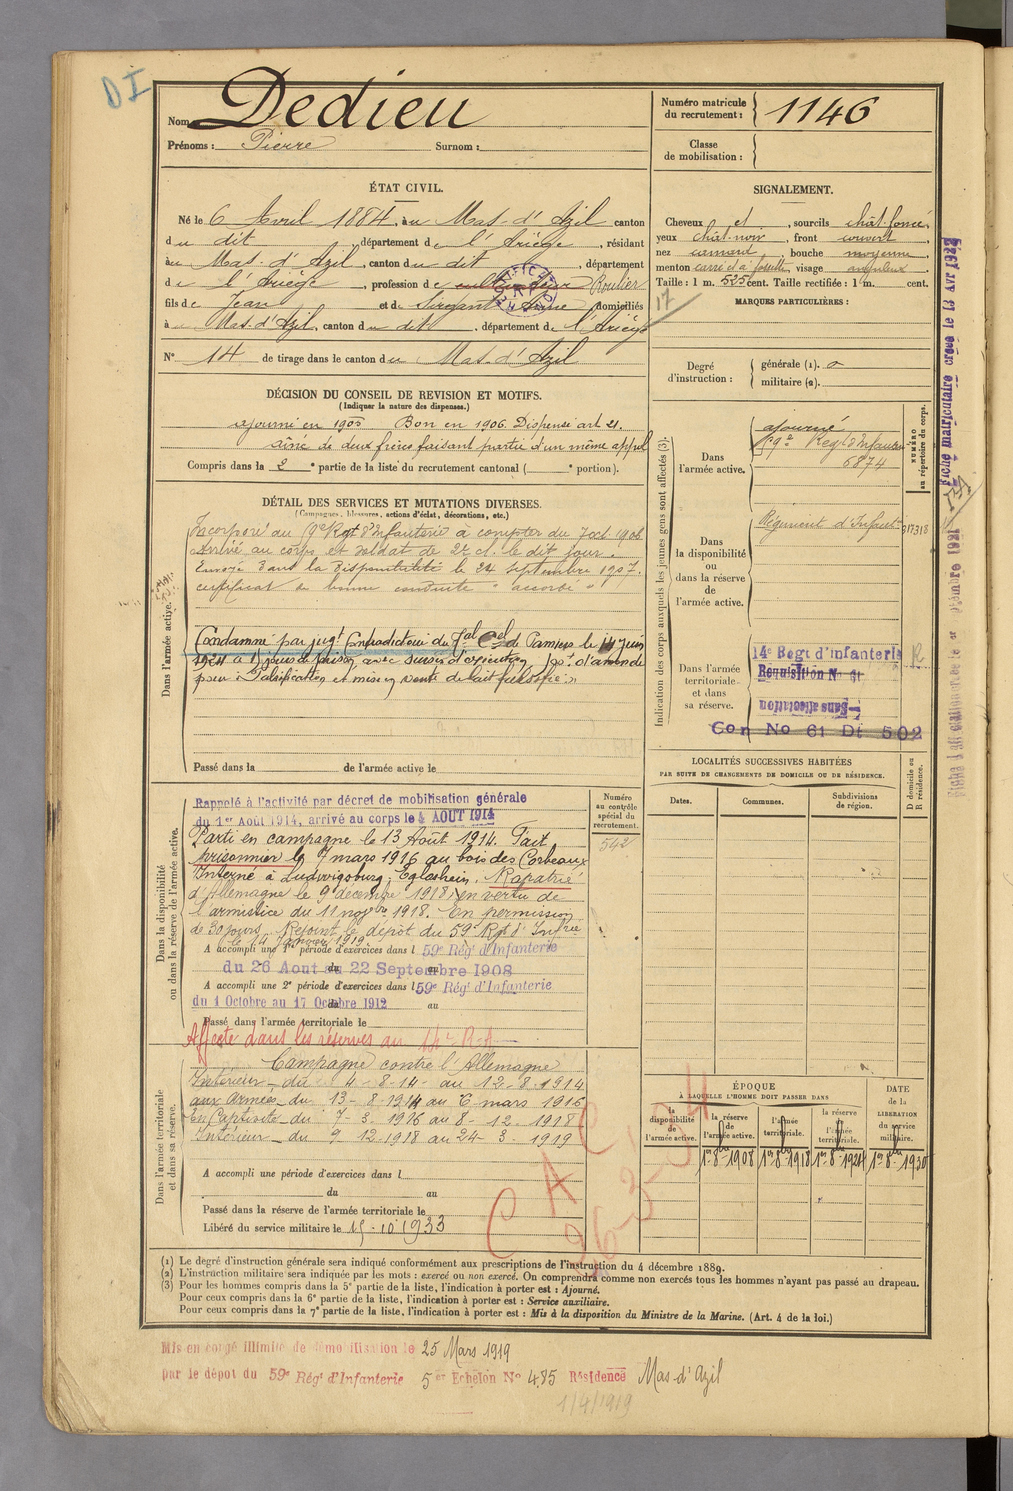 D I
Nom Dedieu
Prénoms : Pierre Surnom :
Numéro matricule du recrutement : 1146
Classe de mobilisation :
ÉTAT CIVIL.
Né le 6 Avril 1884, à u Mas-d'Azil canton
d u dit, département de l'Ariège, résidant
à u Mas-d'Azil, canton d u dit, département
de l'Ariège, profession de cultivateur Roulier
fils de Jean et de Anne domiciliés
à u Mas-d'Azil, canton d u dit, département de l'Ariège
N° 14 de tirage dans le canton d u Mas-d'Azil
SIGNALEMENT.
Cheveux et, sourcils chât. foncé,
yeux chât. noir, front couvert,
nez camard, bouche moyenne,
menton carré et à fossette, visage anguleux
Taille : 1 m. 525 cent. Taille rectifiée : 1 m. cent.
17
MARQUES PARTICULIÈRES :
Degré d'instruction : générale (1). 0
militaire (2).
DÉCISION DU CONSEIL DE REVISION ET MOTIFS.
(Indiquer la nature des dispenses.)
ajourné en 1905 Bon en 1906. Dispensé art 21.
aîné de deux frères faisant partie d'un même appel
Compris dans la 2e partie de la liste du recrutement cantonal ( e portion).
DÉTAIL DES SERVICES ET MUTATIONS DIVERSES.
(Campagnes, blessures, actions d'éclat, décorations, etc.)
Dans l'armée active.
Incorporé au 9e Rgt d'Infanterie à compter du 7 oct. 1906
Arrivé au corps et soldat de 2e cl. le dit jour.
Envoyé dans la disponibilité le 24 septembre 1907.
certificat de bonne conduite "accordé"
Condamné par jugt Contradictoire du Tal Cel de Pamiers le 14 Juin
1924 à 15 jours de prison avec sursis d'exécution d'amende
pour "Falsification et mise en vente de lait falsifié"
Passé dans la de l'armée active le
Indication des corps auxquels les jeunes gens sont affectés (3).
NUMÉRO au répertoire du corps.
Dans l'armée active.
ajourné
9e Régt d'Infanterie
6874
Dans la disponibilité ou dans la réserve de l'armée active.
Régiment d'Infanterie
Dans l'armée territoriale et dans sa réserve.
14e Régt d'infanterie R
Réquisition No 61
Sans affectation
Con No 61 Dt 502
Fiche matriculaire créée le 13 Avr 1932
LOCALITÉS SUCCESSIVES HABITÉES
PAR SUITE DE CHANGEMENTS DE DOMICILE OU DE RÉSIDENCE.
Dates. Communes. Subdivisions de région. D domicile ou R résidence.
Dans la disponibilité ou dans la réserve de l'armée active.
Numéro au contrôle spécial du recrutement.
542
Rappelé à l'activité par décret de mobilisation générale
du 1er Août 1914, arrivé au corps le 4 AOUT 1914
Parti en campagne le 13 Août 1914. Fait
prisonnier le 7 mars 1916 au bois des Corbeaux
Interné à Ludwigsburg, Eglosheim. Rapatrié
d'Allemagne le 9 décembre 1918, en vertu de
l'armistice du 11 novbre 1918. En permission
de 30 jours. Rejoint le dépôt du 59e Rgt d'Infrie
le 19 Janvier 1919.
A accompli une 1re période d'exercices dans l 59e Régt d'Infanterie
du 26 Aout au 22 Septembre 1908
A accompli une 2e période d'exercices dans l 59e Régt d'Infanterie
du 1 Octobre au 17 Octobre 1912
Passé dans l'armée territoriale le
Affecté dans les réserves au 14e R.A
Dans l'armée territoriale et dans sa réserve.
Campagne contre l'Allemagne
Intérieur du 4-8-14 au 12-8-1914
aux Armées du 13-8-1914 au 6 mars 1916
En Captivité du 7-3-1916 au 8-12-1918
Intérieur du 9 12-1918 au 24-3-1919
A accompli une période d'exercices dans l
du au
Passé dans la réserve de l'armée territoriale le
Libéré du service militaire le 15-10-1933
C A C
ÉPOQUE
À LAQUELLE L'HOMME DOIT PASSER DANS
la disponibilité de l'armée active. la réserve de l'armée active. l'armée territoriale. la réserve de l'armée territoriale. DATE de la LIBERATION du service militaire.
1er 8bre 1908 1er 8bre 1918 1er 8bre 1924 1er 8bre 1930
(1) Le degré d'instruction générale sera indiqué conformément aux prescriptions de l'instruction du 4 décembre 1889.
(2) L'instruction militaire sera indiquée par les mots : exercé ou non exercé. On comprendra comme non exercés tous les hommes n'ayant pas passé au drapeau.
(3) Pour les hommes compris dans la 5e partie de la liste, l'indication à porter est : Ajourné.
Pour ceux compris dans la 6e partie de la liste, l'indication à porter est : Service auxiliaire.
Pour ceux compris dans la 7e partie de la liste, l'indication à porter est : Mis à la disposition du Ministre de la Marine. (Art. 4 de la loi.)
Mis en congé illimité de démobilisation le 25 Mars 1919
par le dépôt du 59e Régt d'Infanterie 5e Echelon No 485 Résidence Mas-d'Azil
1/4/1919